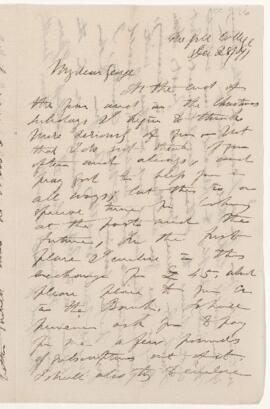 My dear George
At the end of
the year and in the Christmas
holidays I begin to think
more seriously of you. Not
that I do not think of you
often and always, and
pray God to help you in
all ways, but this is a
special time for looking
at the past and the
future. In the first
place I enclose in this
exchange for £45, which
please place to my a/c
in the Bank.
ask you to pay
for me a few pounds
of subscriptions out of it.
I shall also try to enclose